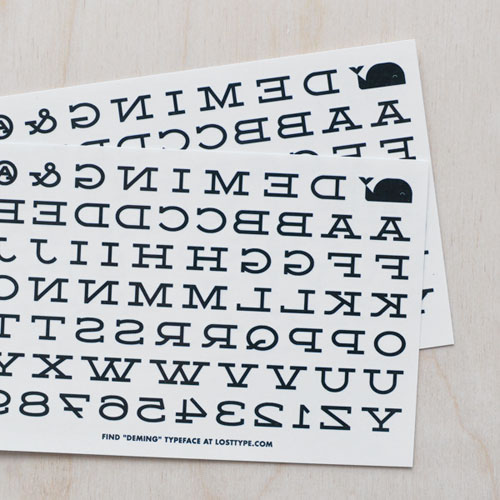 DEMING & A
AABBCC
DEMING & A
AABBCCDDEE
FFGGHHIIJJ
KKLLMMNNO
OPQRRSSTT
UUVVWWXY
YZ123456789
FIND "DEMING" TYPEFACE AT LOSTTYPE.COM